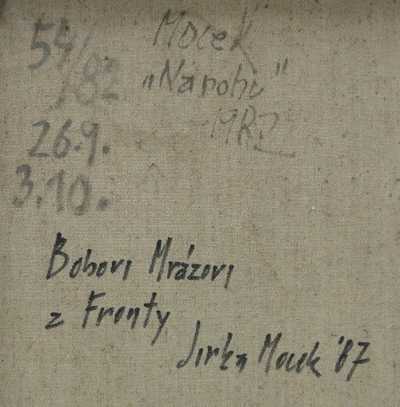 Mocek
54/82
"Nároží"
MRZ
26.9.
3.10.
Bobovi Mrázovi
z Fronty
Jirka Mocek '87